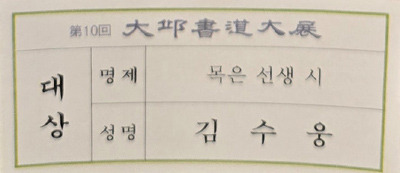 第10回 大邱書道大展
대상
명제 목은 선생 시
성명 김수웅